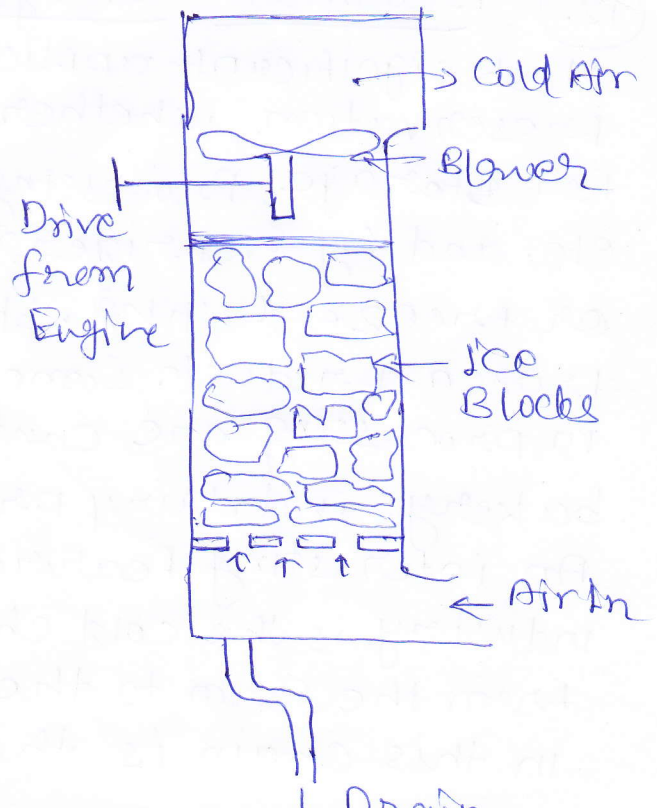 Cold Air
Blower
Drive
from
Engine
Ice
Blocks
Air In
Drain